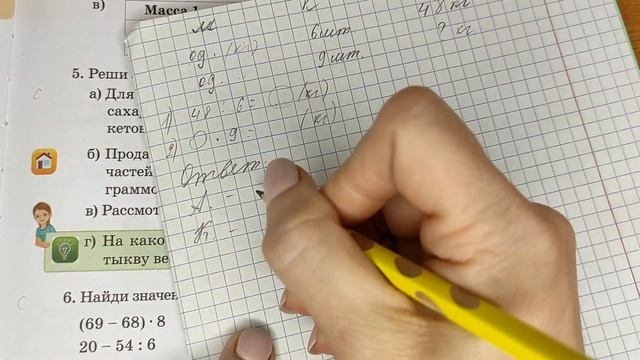 в)
Масса 1
М
К
48 кг
од. (кг)
6 шт
? кг
од.
9 шт.
1) 48 : 6 = (кг)
2) · 9 = (кг)
Ответ:
5. Реши
а) Для
саха
кето
б) Прода
частей
граммо
в) Рассмот
г) На како
тыкву ве
6. Найди значен
(69 – 68) · 8
20 – 54 : 6